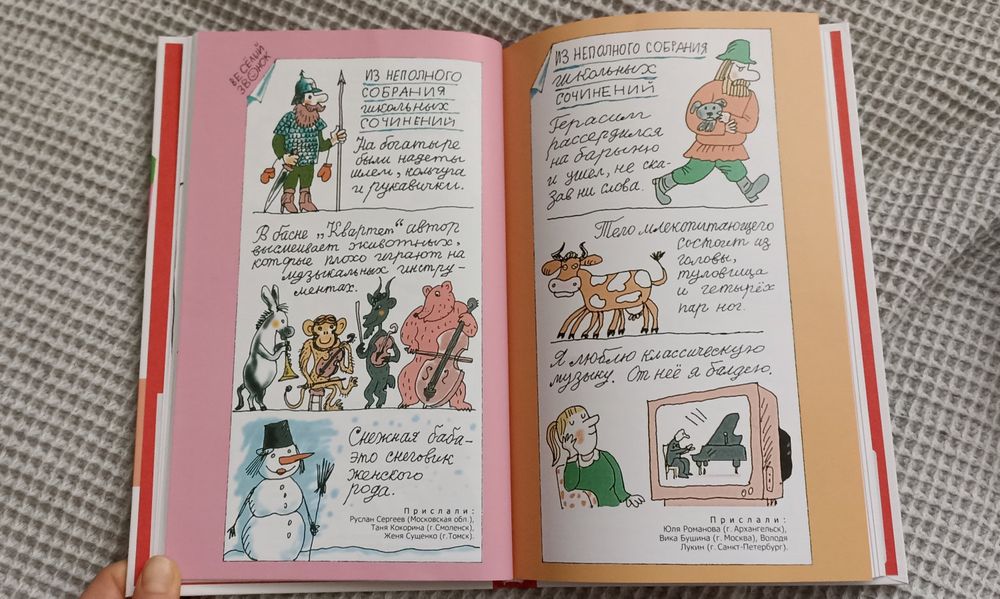 ВЕСЁЛЫЙ
ЗВОНОК
ИЗ НЕПОЛНОГО
СОБРАНИЯ
ШКОЛЬНЫХ
СОЧИНЕНИЙ
На богатыре
были надеты
шлем, кольчуга
и рукавички.
В басне „Квартет“ автор
высмеивает животных,
которые плохо играют на
музыкальных инстру-
ментах.
Снежная баба-
это снеговик
женского
рода.
Прислали:
Руслан Сергеев (Московская обл.),
Таня Кокорина (г.Смоленск),
Женя Сущенко (г.Томск).
ИЗ НЕПОЛНОГО СОБРАНИЯ
ШКОЛЬНЫХ
СОЧИНЕНИЙ
Герасим
рассердился
на барыню
и ушел, не ска-
зав ни слова.
Тело млекопитающего
состоит из
головы,
туловища
и четырёх
пар ног.
Я люблю классическую
музыку. От неё я балдею.
Прислали:
Юля Романова (г. Архангельск),
Вика Бушина (г. Москва), Володя
Лукин (г. Санкт-Петербург).